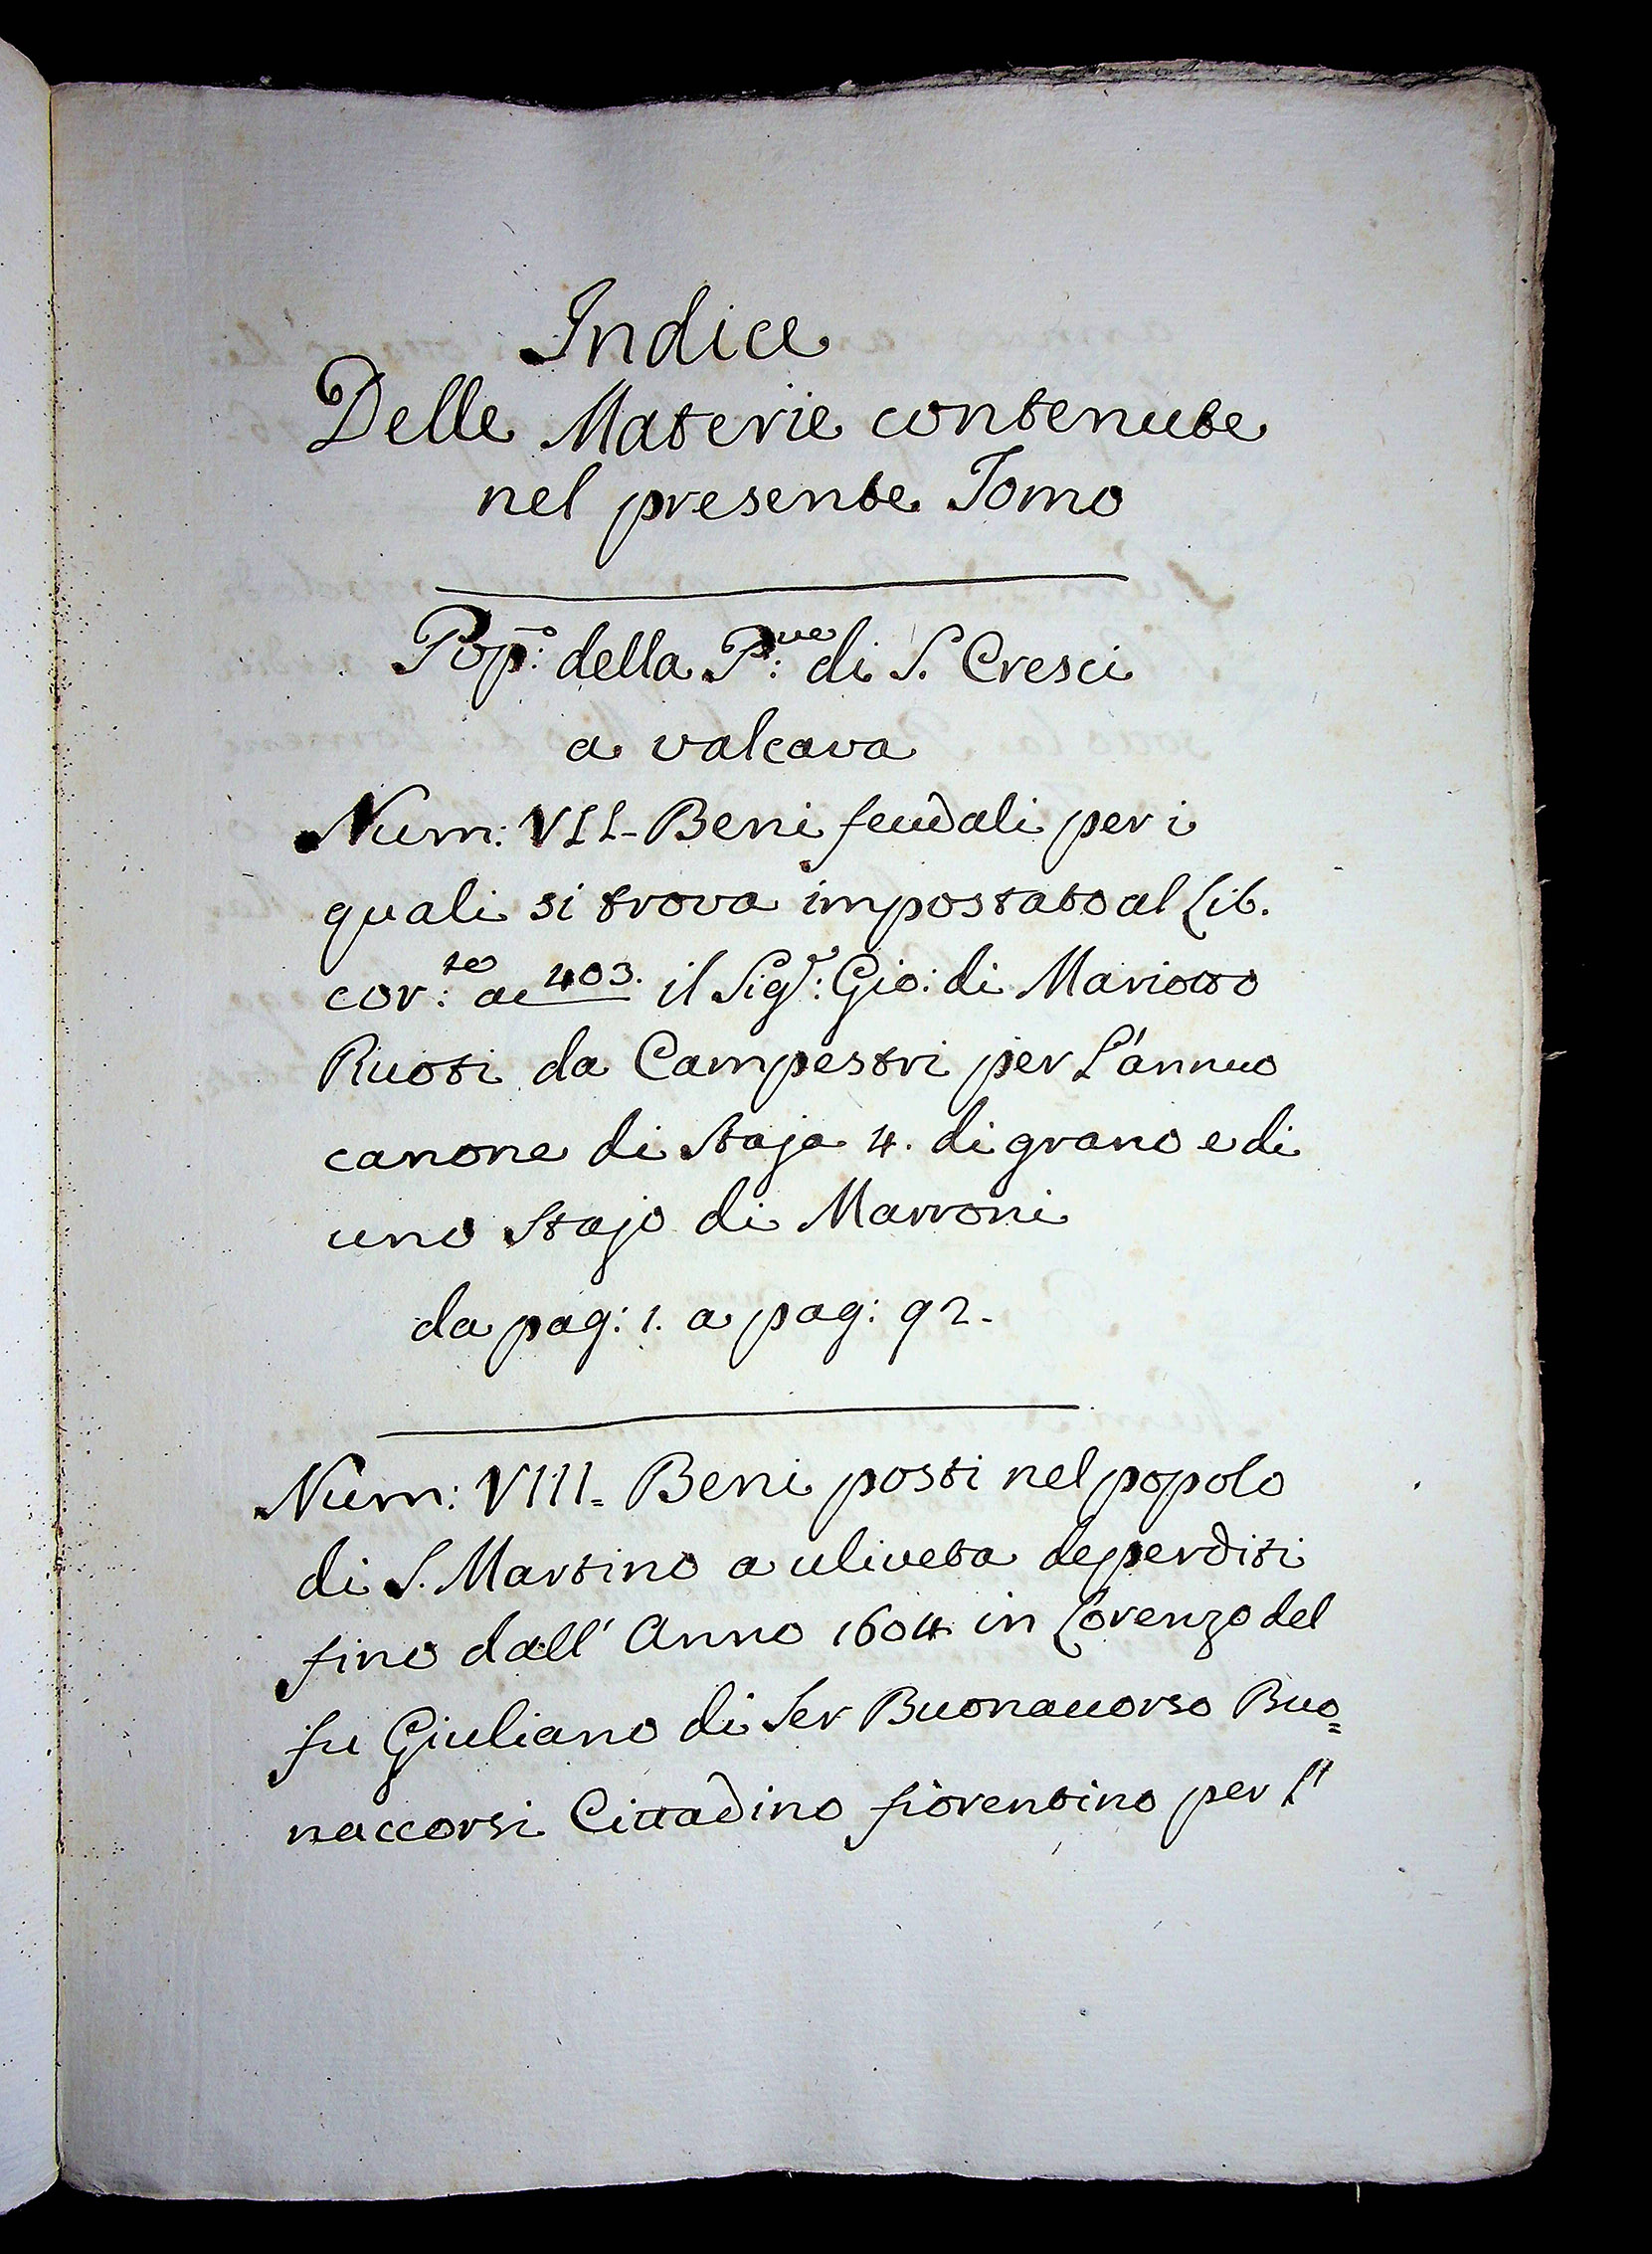 Indice
Delle Materie contenute
nel presente Tomo
Pop:o della P:ve di S. Cresci
a valcava
Num: VII- Beni feudali per i
quali si trova impostato al Lib.
cor:te a 403. il Sigr: Gio: di Mariotto
Riuoti da Campestri per L'annuo
canone di Staja 4. di grano e di
uno Stajo di Marroni
da pag: 1. a pag: 92.
Num: VIII= Beni posti nel popolo
di S. Martino a uliveta deperditi
fino dall' Anno 1604 in Lorenzo del
fu Giuliano di Ser Buonaccorso Buo=
naccorsi Cittadino fiorentino per l'